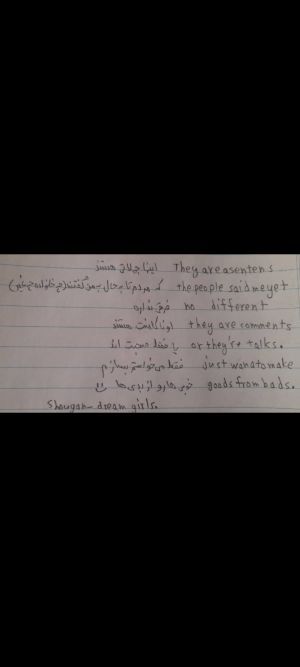 اینا هستند They are asentens
که مردم تا به حال به من گفتند(چه خانواده چه غیر) the people said me yet
فرقی نداره no different
اونا کامنت هستند they are comments
یا فقط صحبت اند or they're talks.
فقط می خواستم بسازم just wana to make
خوبی هارو از بدی ها goods from bads.
dream girls.